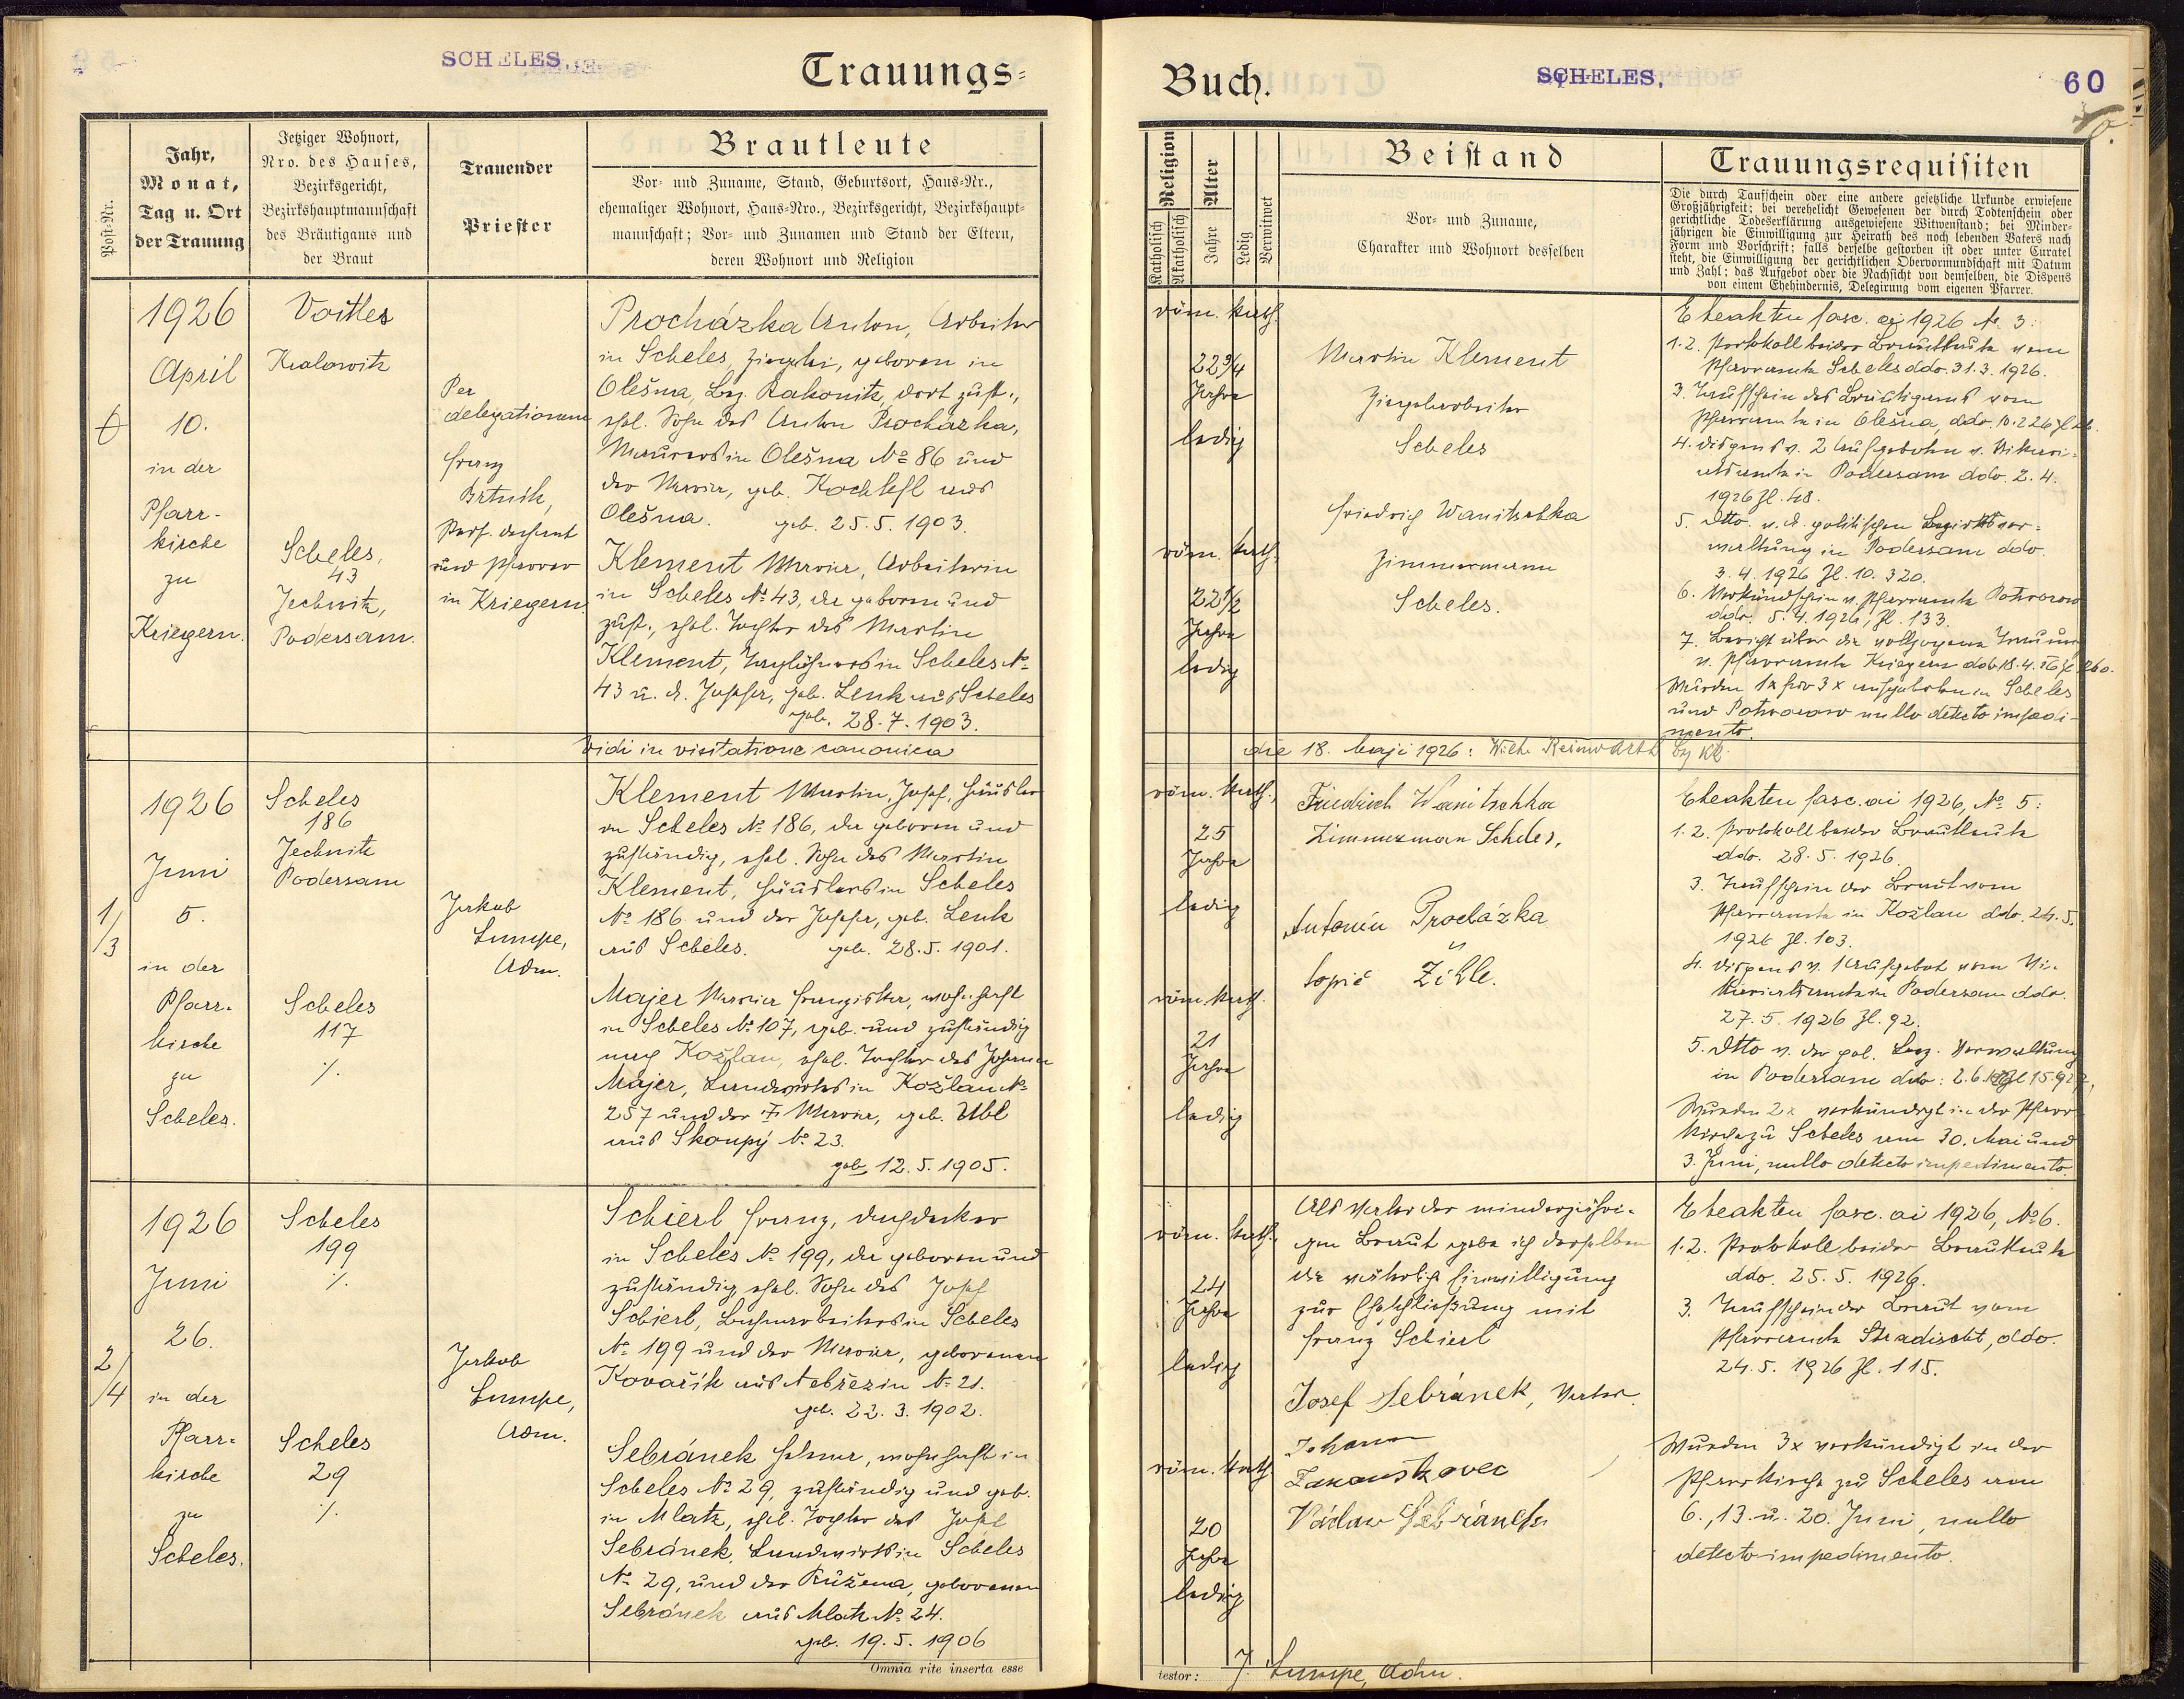 SCHELES
Trauungs-
Post-Nr.
Jahr,
Monat,
Tag u. Ort
der Trauung
Jetziger Wohnort,
Nro. des Hauses,
Bezirksgericht,
Bezirkshauptmannschaft
des Bräutigams und
der Braut
Trauender
Priester
Brautleute
Vor- und Zuname, Stand, Geburtsort, Haus-Nr.,
ehemaliger Wohnort, Haus-Nro., Bezirksgericht, Bezirkshaupt-
mannschaft; Vor- und Zunamen und Stand der Eltern,
deren Wohnort und Religion
1926
April
10.
in der
Pfarr-
kirche
zu
Kriegern.
Voitles
Kralowitz
Scheles,
43
Jechnitz,
Podersam.
Per
delegationem
Franz
Brtnik,
Pers. Dechant
und Pfarrer
in Kriegern.
Procházka Anton, Arbeiter
in Scheles, Ziegelei, geboren in
Olešna, Bez. Rakonitz, dort zust.,
ehel. Sohn des Anton Procházka,
Maurers in Olešna № 86 und
der Maria, geb. aus
Olešna. geb. 25.5.1903.
Klement Maria, Arbeiterin
in Scheles № 43, da geboren und
zust., ehel. Tochter des Martin
Klement, Taglöhners in Scheles №
43 u. d. Josefa, geb. Lenk aus Scheles
geb. 28.7.1903.
Vidi in visitatione canonica
1/3
1926
Juni
5.
in der
Pfarr-
kirche
zu
Scheles.
Scheles
186
Jechnitz
Podersam
Scheles
117
·/.
Jakob
Lumpe,
Adm.
Klement Martin, Josef, Häusler
in Scheles № 186, da geboren und
zuständig, ehel. Sohn des Martin
Klement, Häuslers in Scheles
№ 186 und der Josefa, geb. Lenk
aus Scheles. geb. 28.5.1901.
Majer Maria Franziska, wohnhaft
in Scheles № 107, geb. und zuständig
nach Kožlan, ehel. Tochter des Johann
Majer, Landwirtes in Kožlan №
257 und der Maria, geb. Ubl
aus Skoupý № 23.
geb. 12.5.1905.
2/4
1926
Juni
26.
in der
Pfarr-
kirche
zu
Scheles.
Scheles
199
·/.
Scheles
29
·/.
Jakob
Lumpe,
Adm.
Schierl Franz, Dachdecker
in Scheles № 199, da geboren und
zuständig, ehel. Sohn des Josef
Schierl, Bahnarbeiters in Scheles
№ 199 und der Maria, geborenen
Kovařík aus Nebřezin № 21.
geb. 22.3.1902.
Sebránek Helena, wohnhaft in
Scheles № 29, zuständig und geb.
in Mlatz, ehel. Tochter des Josef
Sebránek, Landwirts in Scheles
№ 29, und der Růžena, geborenen
Sebránek aus Mlatz № 24.
geb. 19.5.1906
Omnia rite inserta esse
Buch.
SCHELES.
60
Religion
Katholisch
Akatholisch
Alter
Jahre
Ledig
Verwitwet
Beistand
Vor- und Zuname,
Charakter und Wohnort desselben
Trauungsrequisiten
Die durch Taufschein oder eine andere gesetzliche Urkunde erwiesene
Großjährigkeit; bei verehelicht Gewesenen der durch Todtenschein oder
gerichtliche Todeserklärung ausgewiesene Witwenstand; bei Minder-
jährigen die Einwilligung zur Heirath des noch lebenden Vaters nach
Form und Vorschrift; falls derselbe gestorben ist oder unter Curatel
steht, die Einwilligung der gerichtlichen Obervormundschaft mit Datum
und Zahl; das Aufgebot oder die Nachsicht von demselben, die Dispens
von einem Ehehindernis, Delegirung vom eigenen Pfarrer.
röm. kath.
22 3/4
Jahre
ledig
röm. kath.
22 1/2
Jahre
ledig
Martin Klement
Ziegelarbeiter
Scheles
Friedrich Wanitschka
Zimmermann
Scheles.
Eheakten fasc. ai 1926 № 3:
1.2. Protokoll beider Brautleute vom
Pfarramte Scheles ddo. 31.3.1926.
3. Taufschein des Bräutigams vom
Pfarramte in Olešna, ddo.
4. Dispens v. 2 Aufgeboten v. Vikari-
atsamte in Podersam ddo. 2.4.
1926 Zl. 48.
5. Dtto. v. d. politischen Bezirksver-
waltung in Podersam ddo.
3.4.1926 Zl. 10.320.
6. Verkündschein v. Pfarramte Potworow
ddo. 5.4.1926, Zl. 133.
7. Bericht über die vollzogene Trauung
v. Pfarramte Kriegern ddo. 18.4.26 Zl. 260.
Wurden 1x für 3x aufgeboten in Scheles
und Potworow nullo detecto impedi-
mento.
die 18. Maji 1926: Wilh. Reinwarth
röm. kath.,
25
Jahre
ledig
röm. kath.
21
Jahre
ledig
Friedrich Wanitschka
Zimmerman Scheles,
Antonín Procházka
topič Žihle.
Eheakten fasc. ai 1926, № 5:
1.2. Protokoll beider Brautleute
ddo. 28.5.1926.
3. Taufschein der Braut vom
Pfarramte in Kožlan ddo. 24.5.
1926 Zl. 103.
4. Dispens v. 1 Aufgebot vom Vi-
kariatsamte in Podersam ddo.
27.5.1926 Zl. 92.
5. Dtto v. der pol. Bez. Verwaltung
in Podersam ddo: 2.6.
Wurden 2x verkündigt in der Pfarr
kirche zu Scheles am 30. Mai und
3. Juni, nullo detecto impedimento.
röm. kath.
24
Jahre
ledig
röm. kath.
20
Jahre
ledig
Als Vater der minderjähri-
gen Braut gebe ich derselben
die väterliche Einwilligung
zur Eheschließung mit
Franz Schierl
Josef Sebránek, Vater.
Johann
Václav Sebránek
Eheakten fasc. ai 1926, № 6.
1.2. Protokoll beider Brautleute
ddo. 25.5.1926.
3. Taufschein der Braut vom
Pfarramte Hradischt, ddo.
24.5.1926 Zl. 115.
Wurden 3x verkündigt in der
Pfarrkirche zu Scheles am
6., 13. u. 20. Juni, nullo
detecto impedimento.
testor: J. Lumpe, Adm.